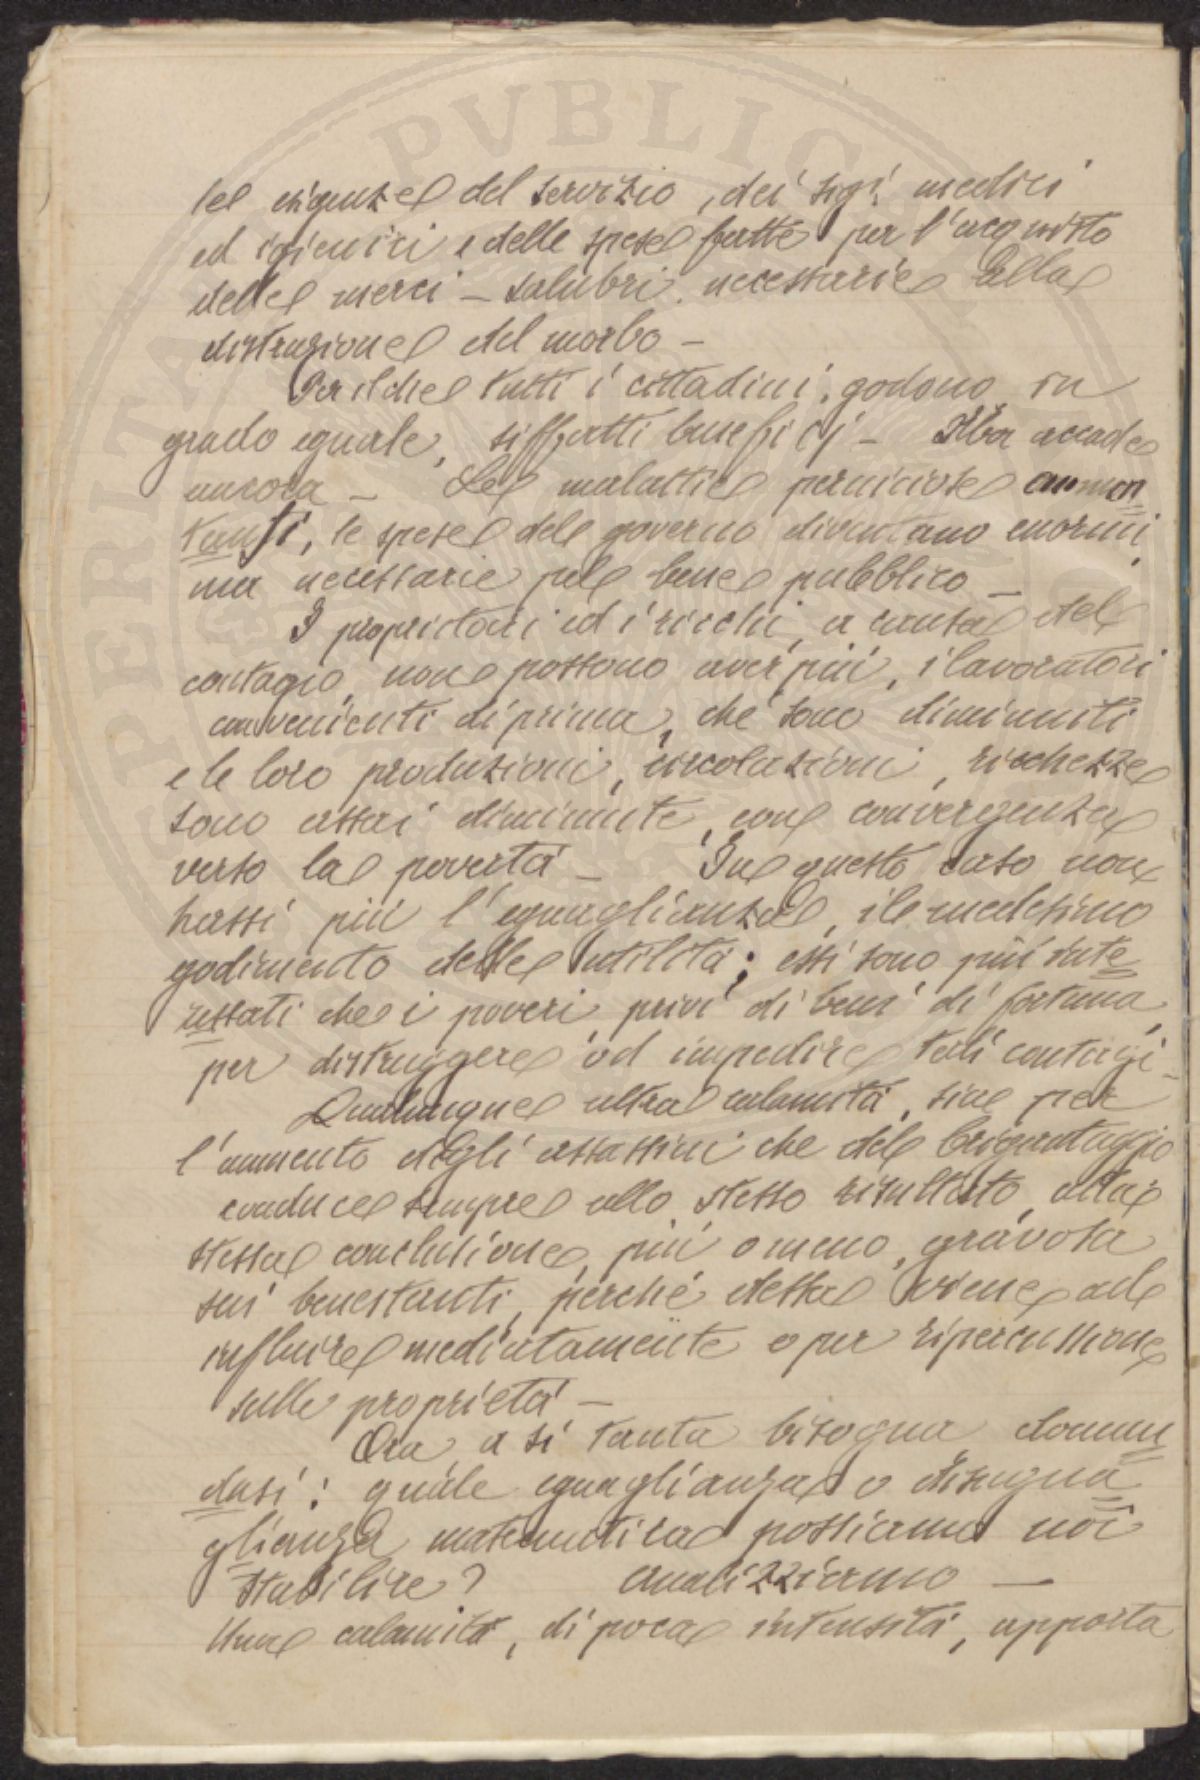 le esigenze del servizio, dei sigi medici
ed igienici e delle spese fatte per l'acquisto
delle merci - salubri necessarie alla
distruzione del morbo -
Per il che tutti i cittadini, godono, in
grado eguale, siffatti beneficj - Ma accade
ancora - Le malattie perniciose aumen
tanti, le spese del governo diventano enormi,
ma necessarie pel bene pubblico -
I proprietari ed i ricchi, a causa del
contagio, non possono aver più, i lavoratori
convenienti di prima, che sono diminuiti
e le loro produzioni, circolazioni, ricchezze
sono assai diminuite, con convergenza
verso la povertà - In questo caso non
hassi più l'eguaglianza, il medesimo
godimento delle utilità; essi sono più inte
ressati che i poveri, privi di beni di fortuna,
per distruggere od impedire tali contagi -
Qualunque altra calamità, sia per
l'aumento degli assassini che del brigantaggio
conduce sempre allo stesso risultato, alla
stessa conclusione, più o meno, gravosa
sui benestanti, perché dessa viene ad
influire mediatamente o per ripercussione
sulle proprietà -
Ora, a sì tanta bisogna doman
dasi: quale eguaglianza o disegua
glianza matematica possiamo noi
stabilire? Analizziamo -
Una calamità, di poca intensità, apporta
PERITA PVBLICA